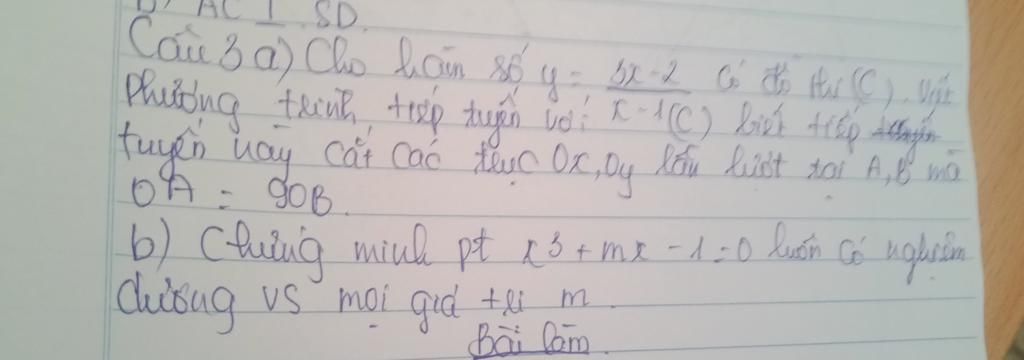 b) AC ⊥ SD
Câu 3 a) Cho hàm số y = 3x-2 / x-1 có đồ thị (C). Viết
phương trình tiếp tuyến với (C) biết tiếp
tuyến này cắt các trục Ox, Oy lần lượt tại A, B mà
OA = 9OB.
b) Chứng minh pt x³ + mx - 1 = 0 luôn có nghiệm
dương vs mọi giá trị m.
Bài làm